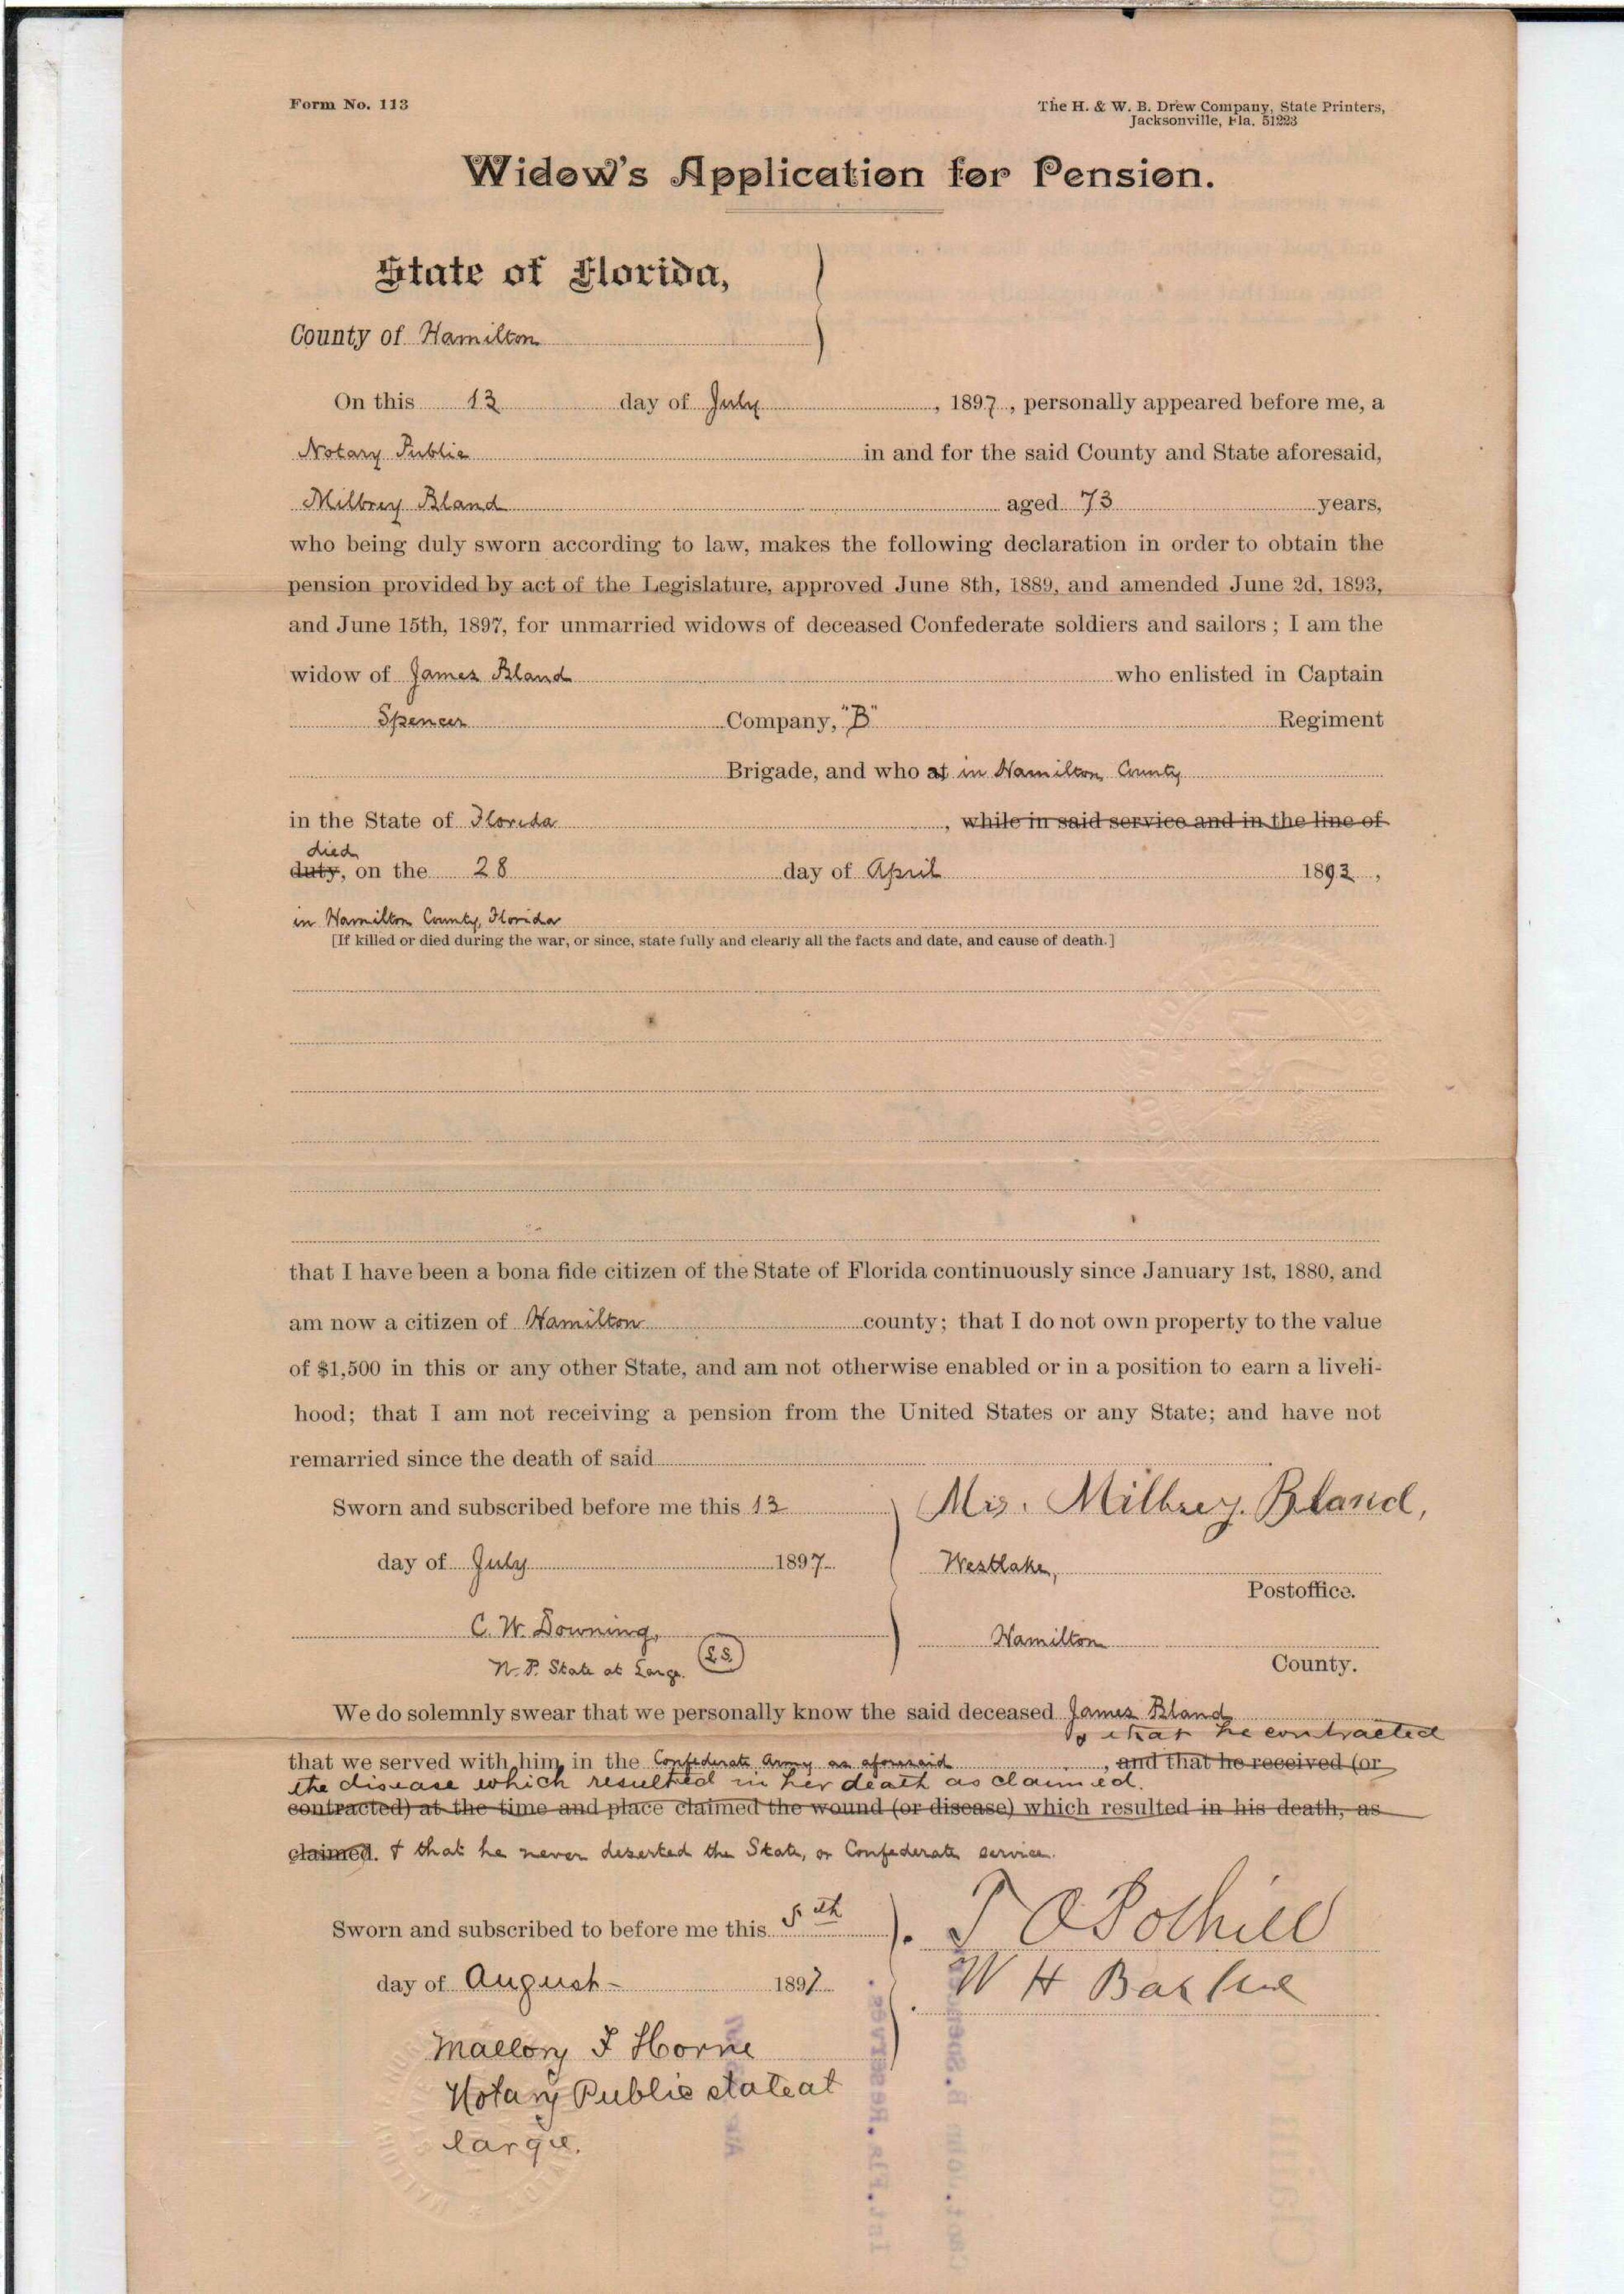 Form No. 113
The H. & W. B. Drew Company, State Printers,
Jacksonville, Fla. 51223
Widow's Application for Pension.
State of Florida,
County of Hamilton
On this 13 day of July, 1897, personally appeared before me, a
Notary Public in and for the said County and State aforesaid,
Milbrey Bland aged 73 years,
who being duly sworn according to law, makes the following declaration in order to obtain the
pension provided by act of the Legislature, approved June 8th, 1889, and amended June 2d, 1893,
and June 15th, 1897, for unmarried widows of deceased Confederate soldiers and sailors; I am the
widow of James Bland who enlisted in Captain
Spencer Company, "B" Regiment
Brigade, and who at in Hamilton County
in the State of Florida, while in said service and in the line of
died
duty, on the 28 day of April 1893,
in Hamilton County, Florida
[If killed or died during the war, or since, state fully and clearly all the facts and date, and cause of death.]
that I have been a bona fide citizen of the State of Florida continuously since January 1st, 1880, and
am now a citizen of Hamilton county; that I do not own property to the value
of $1,500 in this or any other State, and am not otherwise enabled or in a position to earn a liveli-
hood; that I am not receiving a pension from the United States or any State; and have not
remarried since the death of said
Sworn and subscribed before me this 13 Mrs. Milbrey Bland,
day of July 1897 Westlake,
Postoffice.
C. W. Downing, Hamilton
N. P. State at Large. L.S. County.
We do solemnly swear that we personally know the said deceased James Bland
& that he contracted
that we served with him in the Confederate Army as aforesaid, and that he received (or
the disease which resulted in her death as claimed.
contracted) at the time and place claimed the wound (or disease) which resulted in his death, as
claimed. & that he never deserted the State, or Confederate service.
Sworn and subscribed to before me this 5th T O Polhill
day of August 1897 W H
Mallory F Horne
Notary Public state at
large.